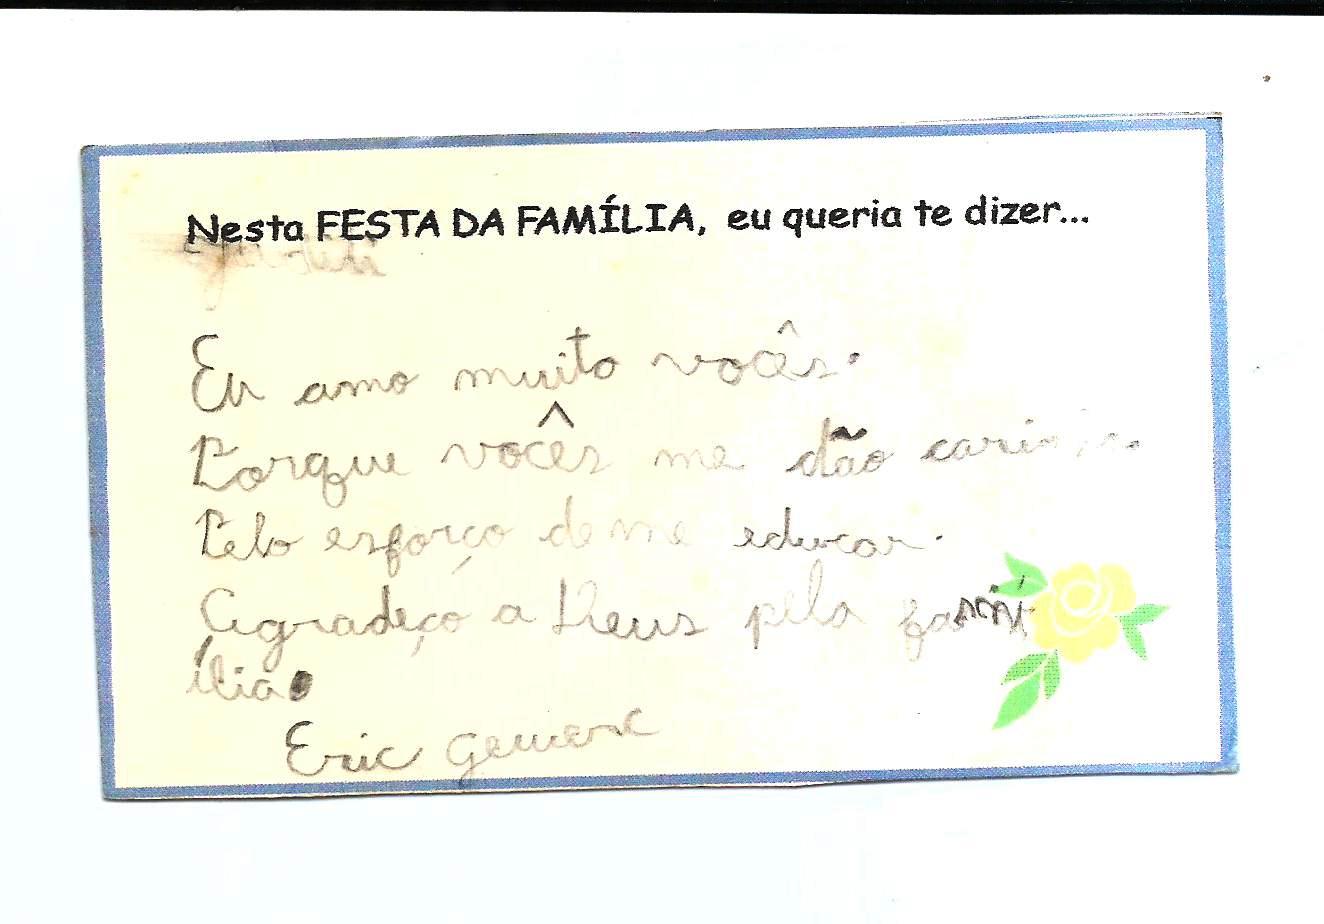 Nesta FESTA DA FAMÍLIA, eu queria te dizer...
Eu amo muito vocês.
Porque vocês me dão
Pelo esforço de me educar.
Agradeço a Deus pela famí
ília.
Eric